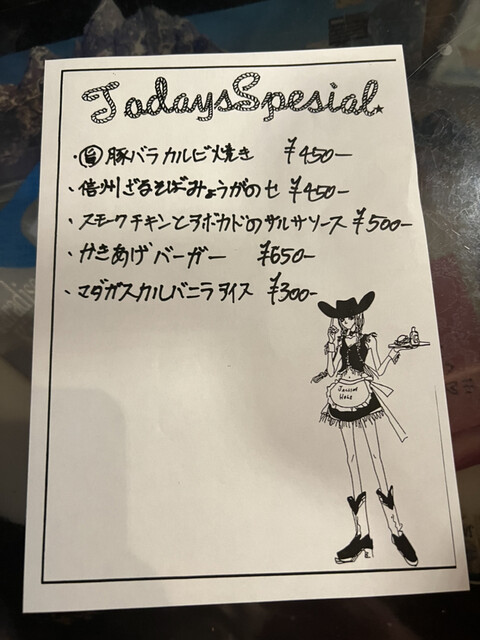 TodaysSpesial
・旨豚バラカルビ焼き ¥450-
・信州ざるそばみょうがのせ ¥450-
・スモークチキンとアボカドのサルサソース ¥500-
・かきあげバーガー ¥650-
・マダガスカルバニラアイス ¥300-
JACKSON
HOLE